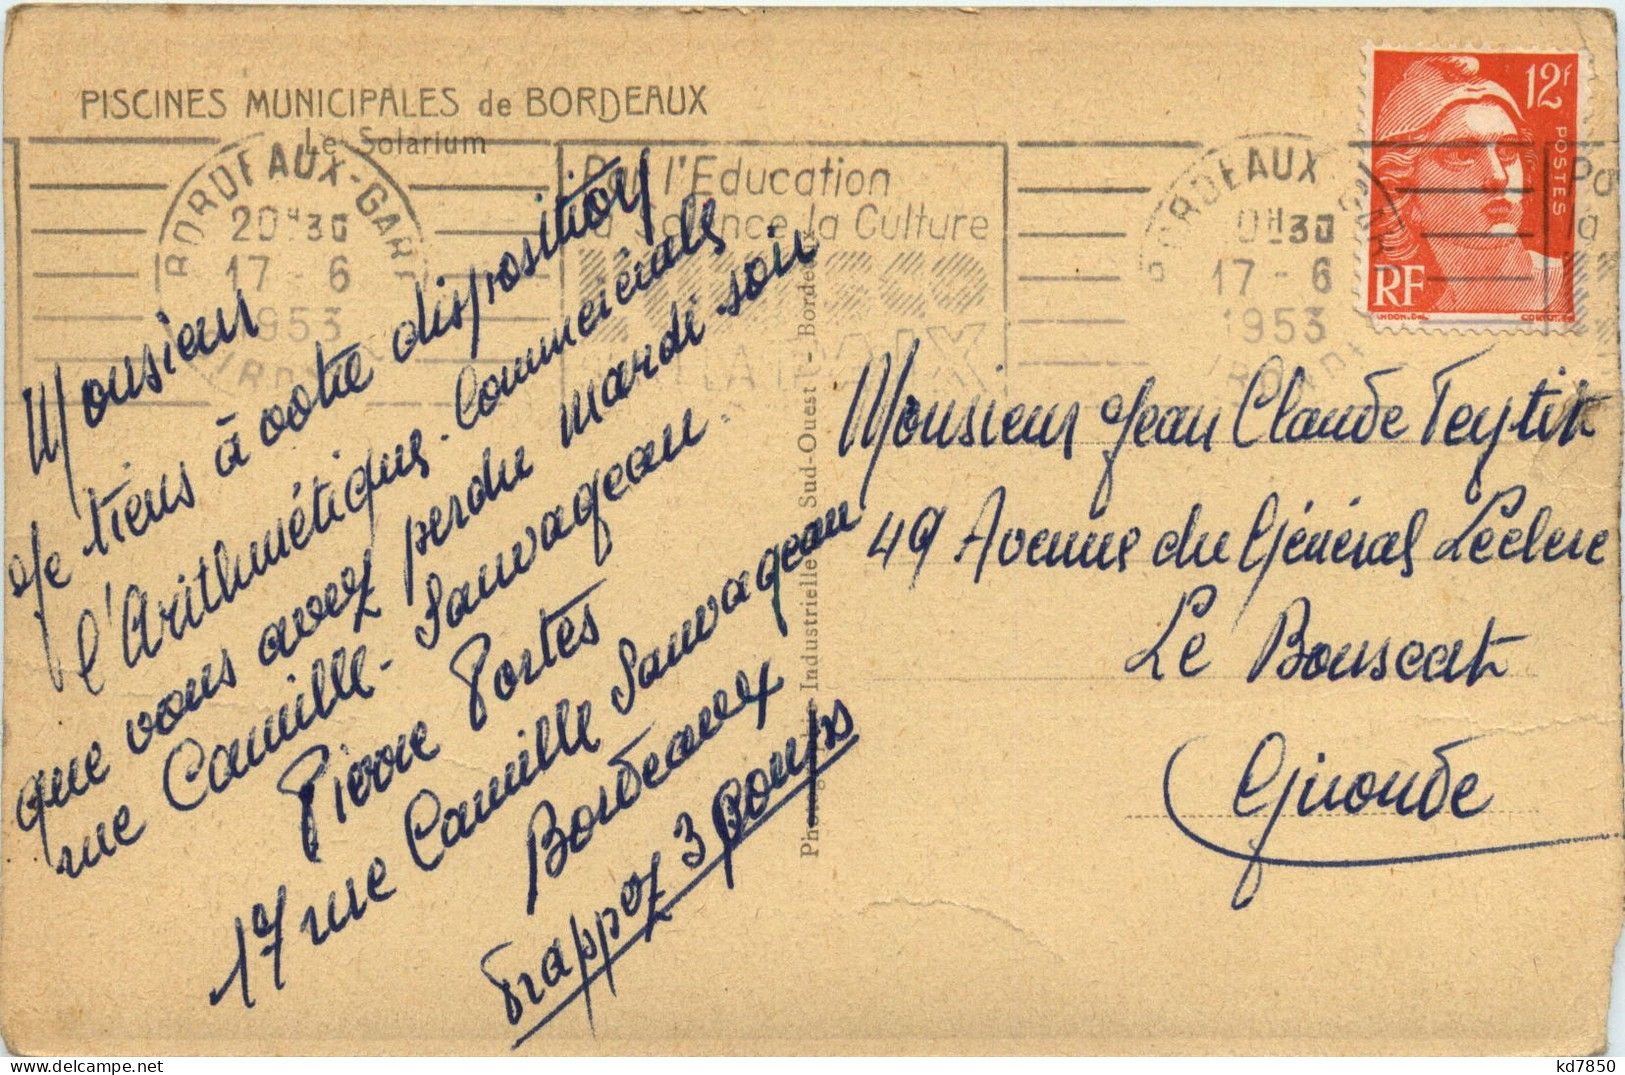 PISCINES MUNICIPALES de BORDEAUX
Le Solarium
BORDEAUX-GARE
20H30
17 - 6
1953
GIRONDE
Par l'Education
la Science la Culture
UNESCO
BATIT LA PAIX
BORDEAUX GARE
20H30
17 - 6
1953
GIRONDE
12F
POSTES
RF
Monsieur
Je tiens à votre disposition
l'Arithmétique. Commerciale
que vous avez perdu mardi soir
rue Camille. Sauvageau.
Pierre Portes
17 rue Camille Sauvageau
Bordeaux
Frappez 3 coups
Industrielle Sud-Ouest - Bordeaux
Monsieur Jean Claude Teytit
49 Avenue du Général Leclerc
Le Bouscat
Gironde
kd7850